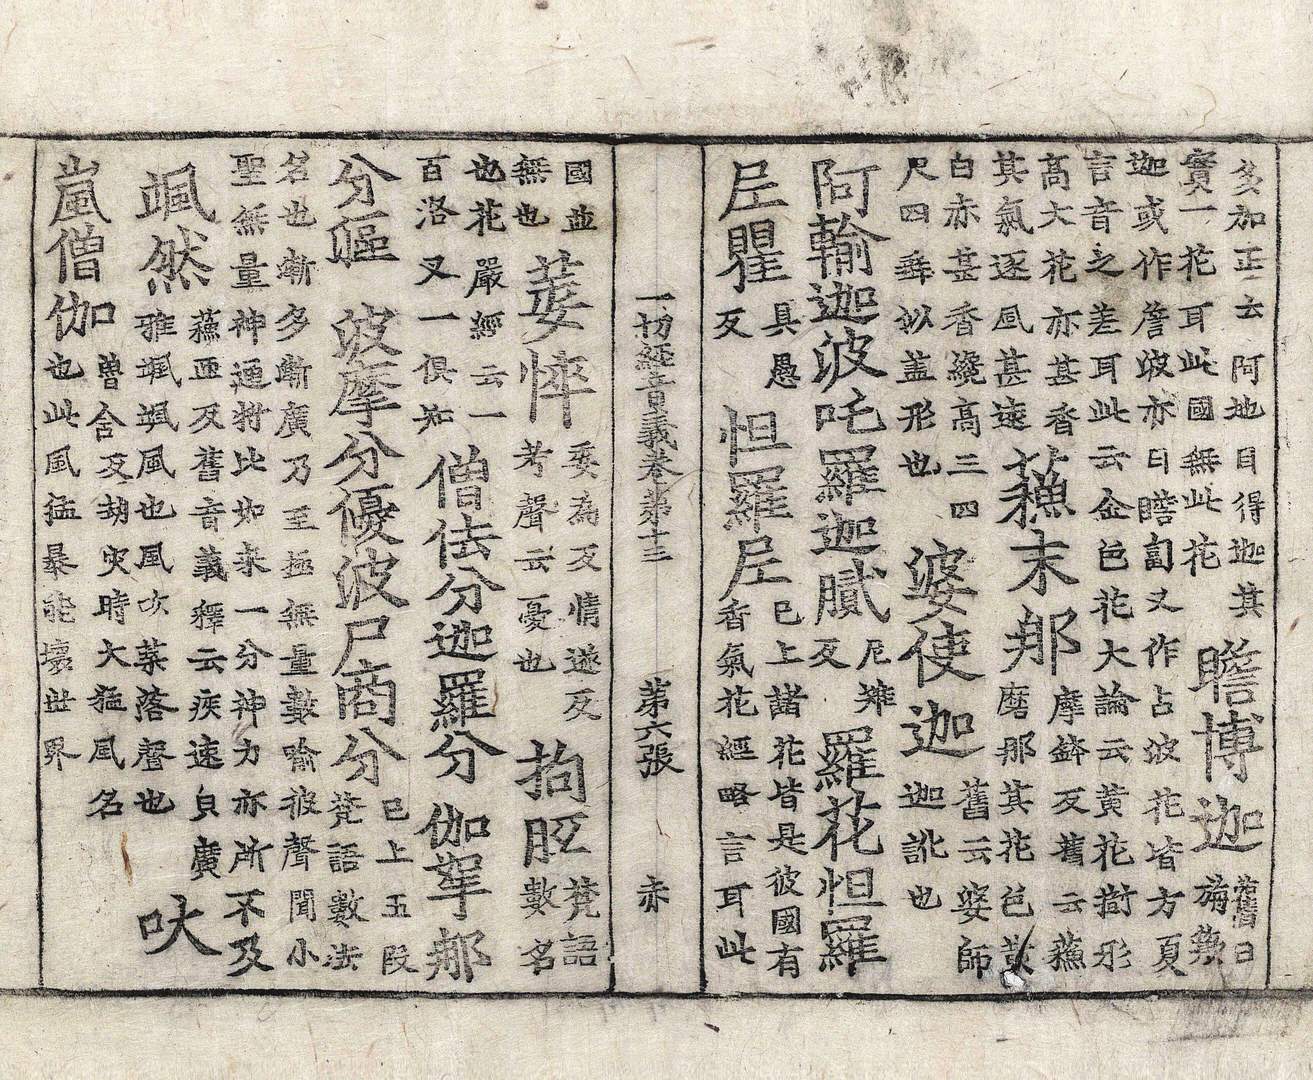 多加正云阿地目得迦其
實一花耳此國無此花
瞻博迦
舊曰
旃簸
迦或作詹波亦曰瞻匐又作占波花皆方夏
言音之差耳此云金色花大論云黃花樹形
高大花亦甚香
其氣逐風甚遠
蘇末那
摩鉢反舊云蘇
磨那其花色黃
白亦甚香繞高三四
尺四垂似蓋形也
婆使迦
舊云婆師
迦訛也
阿輸迦波吒羅迦膩
尼雉
反
羅花怛羅
尼瞿
具愚
反
怛羅尼
已上諸花皆是彼國有
香氣花經略言耳此
一切經音義卷第十三 第六張 赤
國並
無也
萎悴
委為反情遂反
考聲云憂也
拘胝
梵語
數名
也花嚴經云一
百洛叉一俱知
僧佉分迦羅分伽拏那
分漚波摩分優波尸商分
已上五段
梵語數法
名也漸多漸廣乃至極無量數喻彼聲聞小
聖無量神通將比如来一分神力亦所不及
颯然
蘇匝反舊音義釋云疾速皃廣
雅颯颯風也風吹葉落聲也
吠
嵐僧伽
曹舍反胡灾時大猛風名
也此風猛暴能壞世界